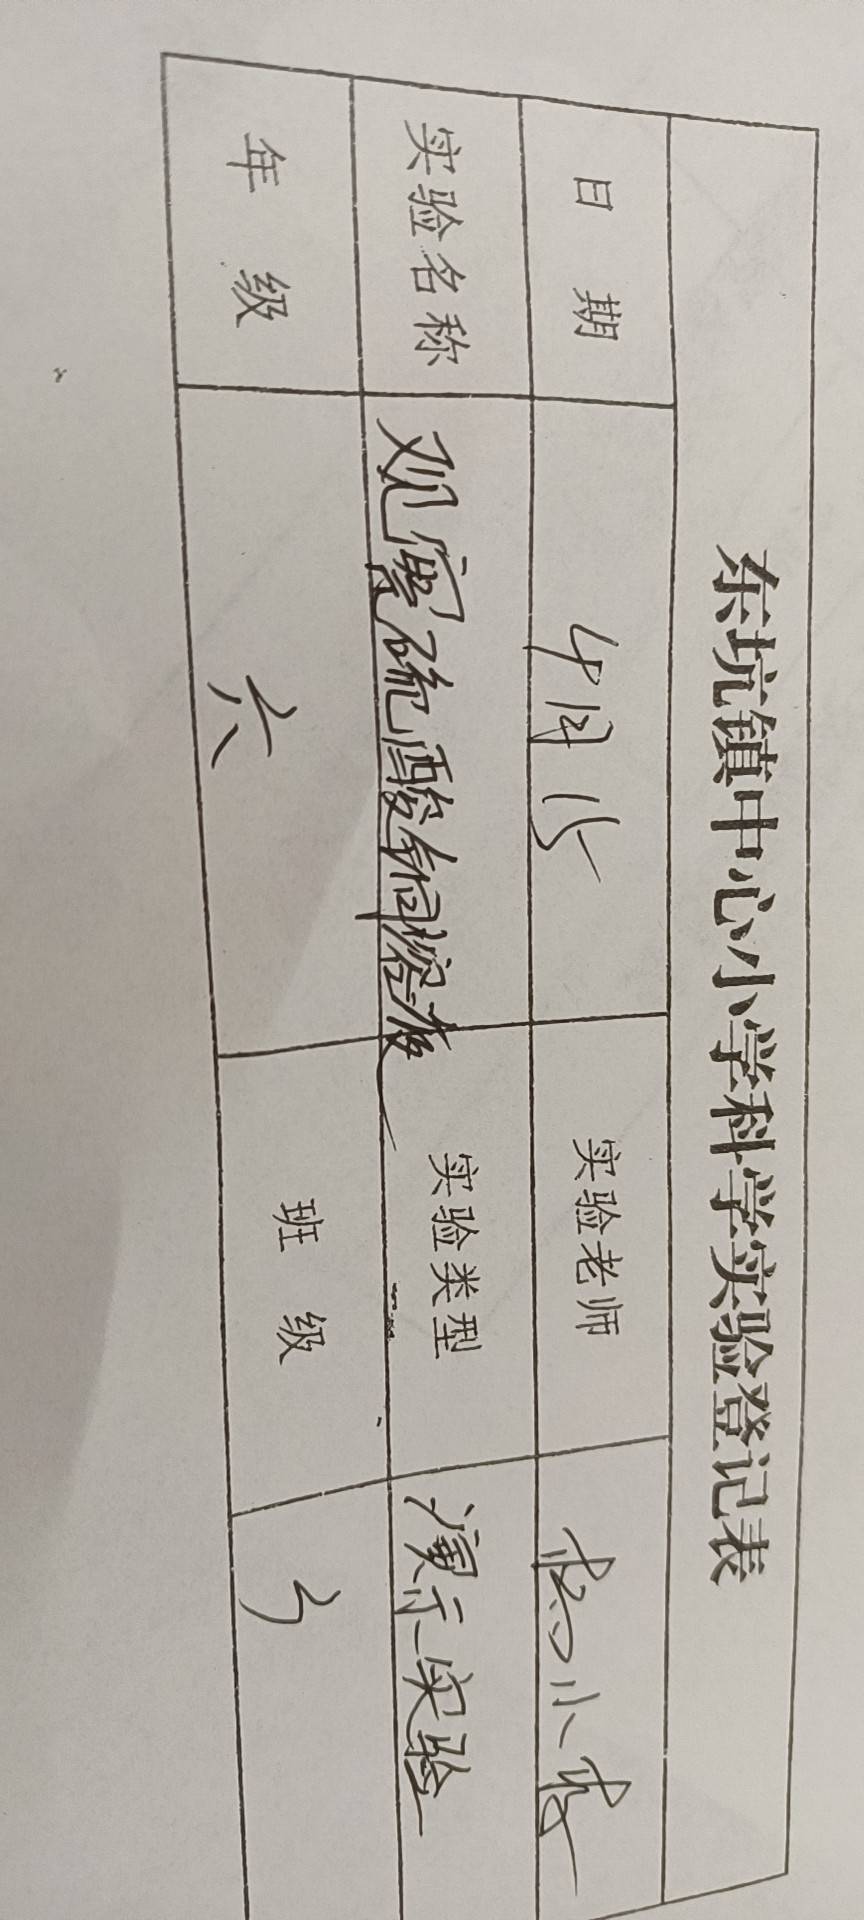 东坑镇中心小学科学实验登记表
日期 4月15 实验老师 小
实验名称 观察硫酸铜溶液 实验类型 演示实验
年级 六 班级 3